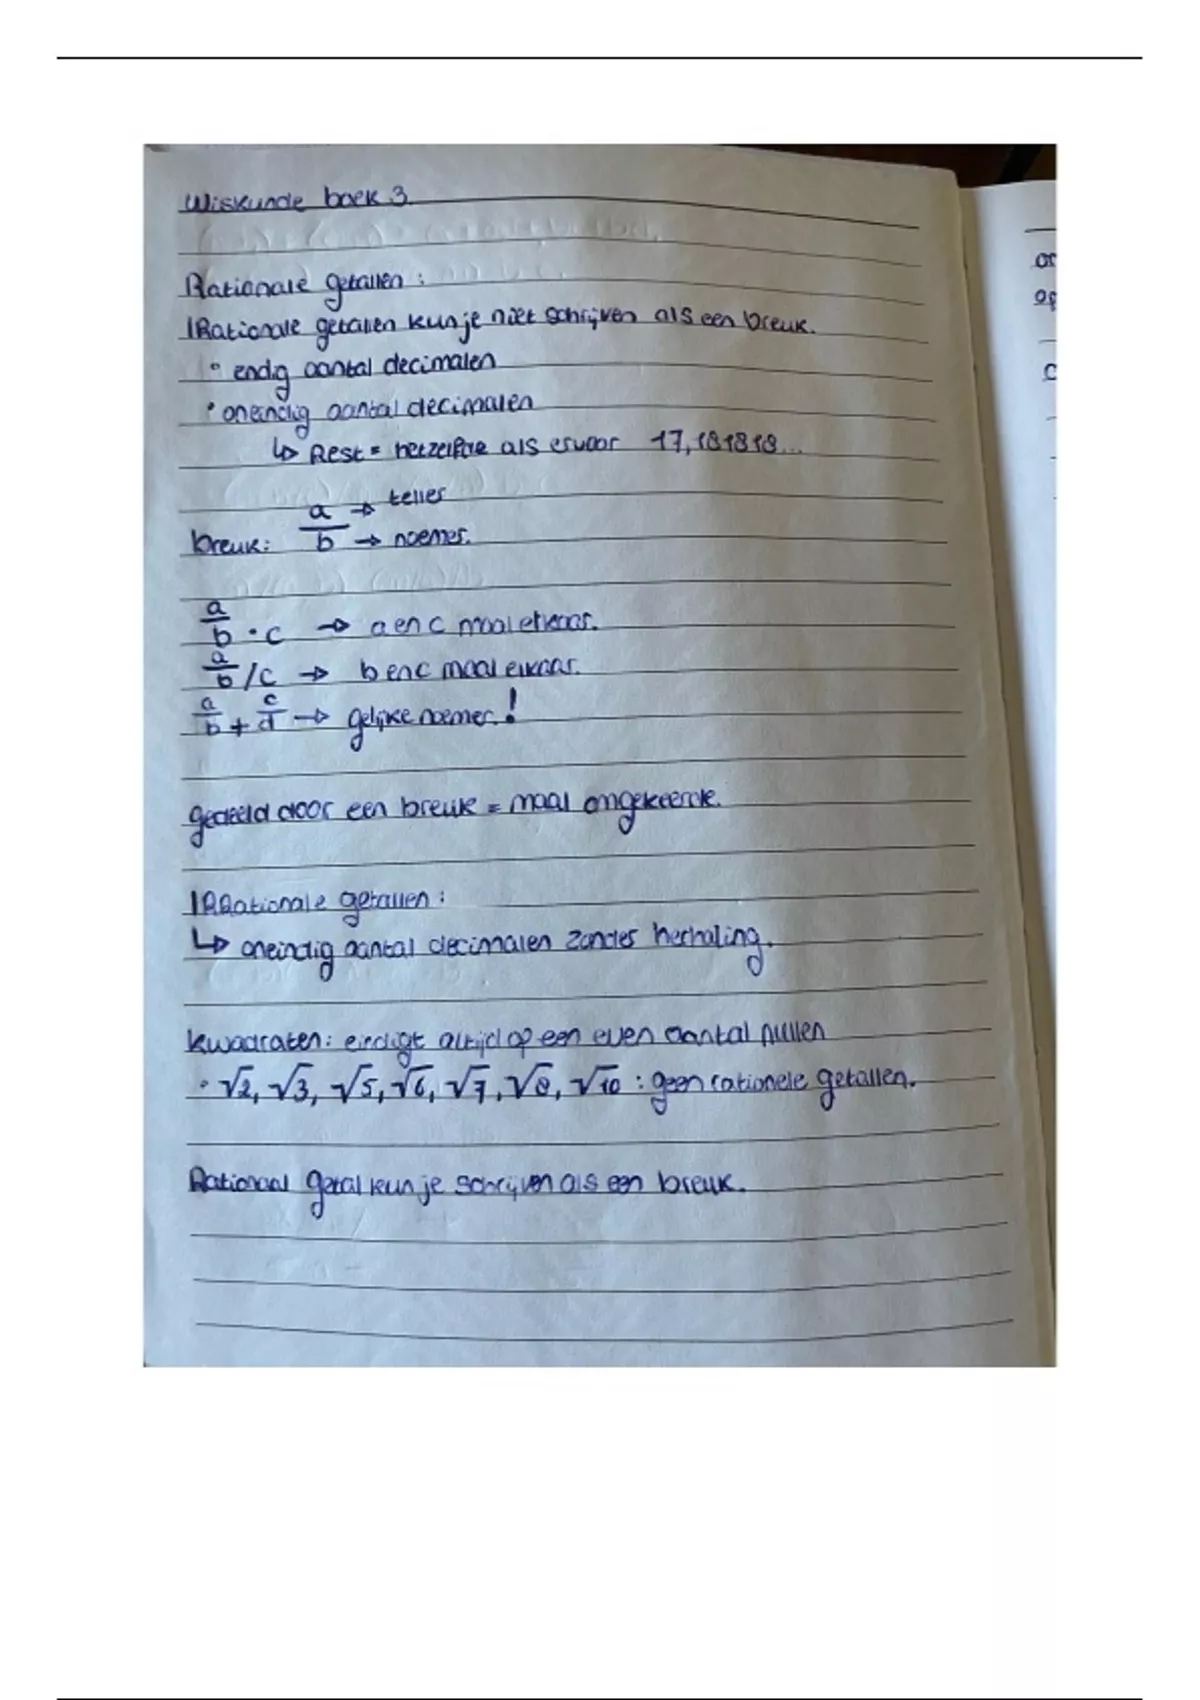 Wiskunde boek 3.
Rationale getallen :
IRationale getallen kun je niet schrijven als een breuk.
° endig aantal decimalen
° oneindig aantal decimalen
↳ Rest = hetzelfde als ervoor 17,181818...
a → teller
breuk: — b → noemer.
a/b · c → a en c maal elkaar.
a/b /c → b en c maal elkaar.
a/b + c/d → gelijke noemer!
gedeeld door een breuk = maal omgekeerde.
IRRationale getallen :
↳ oneindig aantal decimalen zonder herhaling.
kwadraten: eindigt altijd op een even aantal nullen
° √2, √3, √5, √6, √7, √8, √10 : geen rationele getallen.
Rationaal getal kun je schrijven als een breuk.
or
op
c